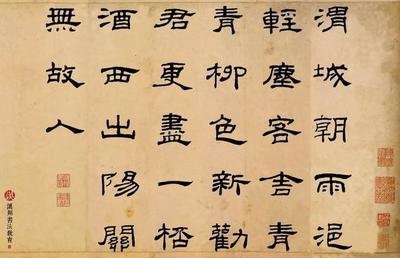 渭城朝雨浥
輕塵客舍青
青柳色新勸
君更盡一杯
酒西出陽關
無故人
漢翔書法教育